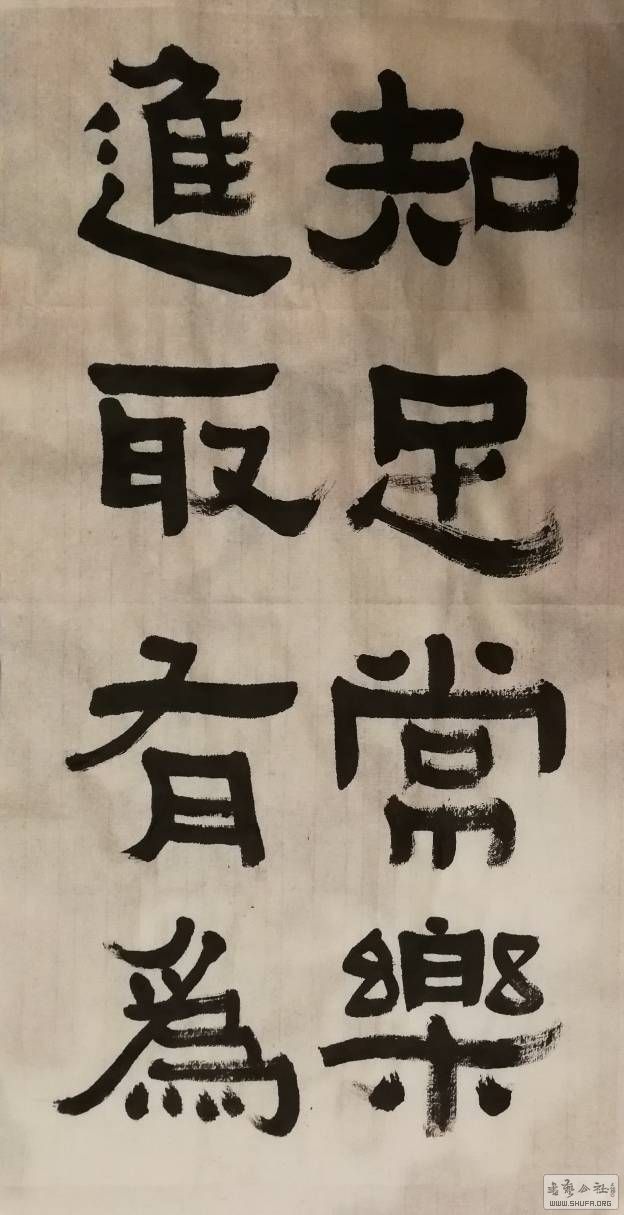 知足常樂
進取有為
WWW.SHUFA.ORG